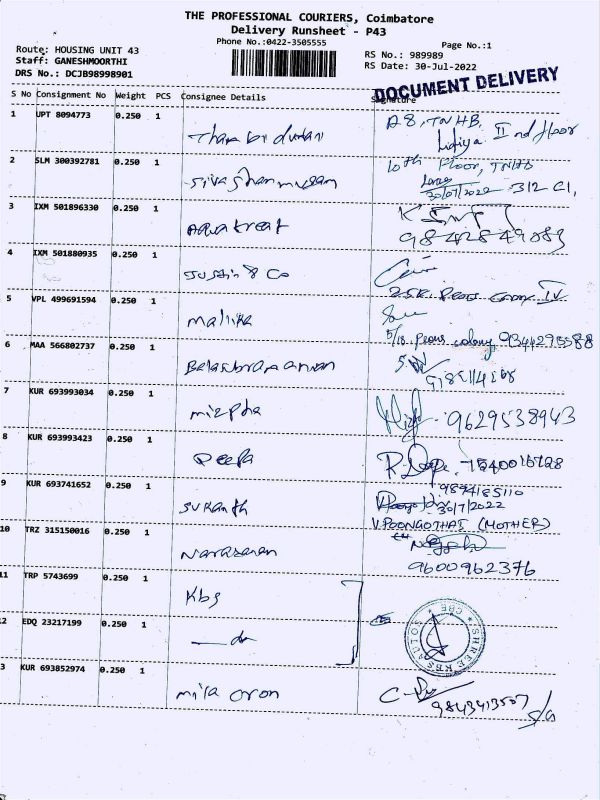 THE PROFESSIONAL COURIERS, Coimbatore
Delivery Runsheet - P43
Phone No.:0422-3505555
Page No.:1
Route: HOUSING UNIT 43
RS No.: 989989
Staff: GANESHMOORTHI
RS Date: 30-Jul-2022
DRS No.: DCJB98998901
DOCUMENT DELIVERY
S No Consignment No Weight PCS Consignee Details Signature
1 UPT 8094773 0.250 1
A8, TNHB,
II nd floor
2 SLM 300392781 0.250 1
10th Floor, TNHB
30/07/2022 312 C1,
3 IXM 501896330 0.250 1
Aquatreat
4 IXM 501880935 0.250 1
Justin & Co
5 VPL 499691594 0.250 1
Mallika
colony 9344295588
6 MAA 566802737 0.250 1
7 KUR 693993034 0.250 1
mizpha
9629538943
8 KUR 693993423 0.250 1
Deepa
9 KUR 693741652 0.250 1
9894185110
Sukanth
30/7/2022
V.POONGOTHAI (MOTHER)
10 TRZ 315150016 0.250 1
9600962376
11 TRP 5743699 0.250 1
Kbs
12 EDQ 23217199 0.250 1
do
SHREE KBS AUTOS CBE
13 KUR 693852974 0.250 1
mila oron
9843413507